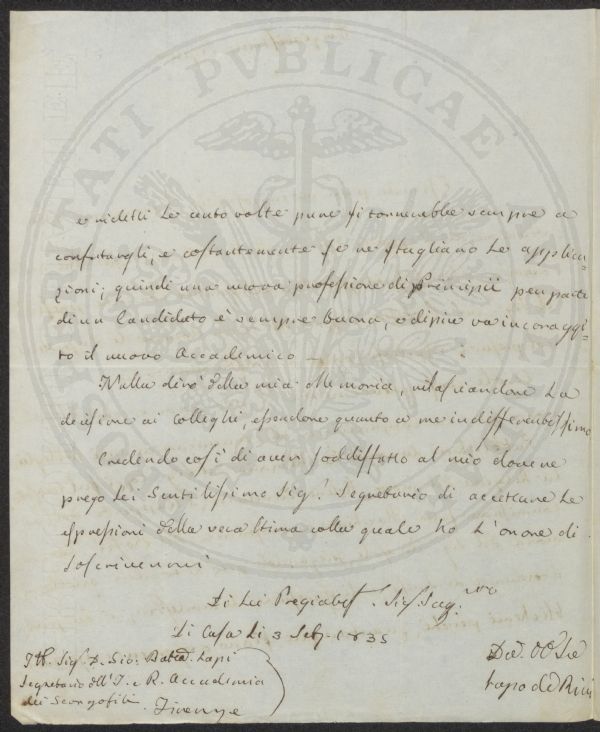 e ridetti le cento volte pure si tornerebbe sempre a
confutargli, e costantemente se ne sbagliano le applica-
zioni; quindi una nuova professione di Principii per parte
di un Candidato è sempre buona, e di più va incoraggi-
to il nuovo Accademico —
Nulla dirò della mia Memoria, rilasciandone la
decisione ai Colleghi, essendone quanto a me indifferentissimo
Credendo così di aver soddisfatto al mio dovere
prego Lei Gentilissimo Sig.r Segretario di accettare le
espressioni della vera stima colla quale ho l'onore di
soscrivermi
Di Lei Pregiabilss. Sig. Seg.rio
Di Casa li 3 Set. 1835
Ill. Sig. D. Gio: Batta Lapi
Segretario dell'I. e R. Accademia
dei Georgofili. Firenze
Dev. Obb. Se
Lapo de Ricci
PROSPERITATI PVBLICAE AVGENDAE